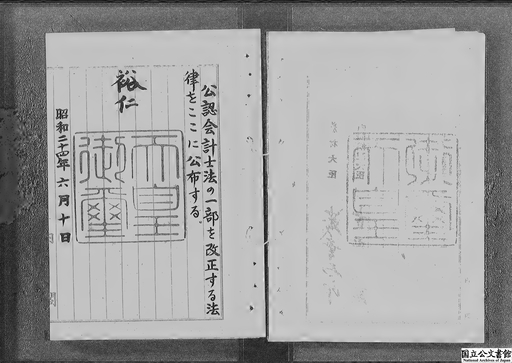 公認会計士法の一部を改正する法
律をここに公布する。
裕仁
昭和二十四年六月十日
天皇
御璽
国立公文書館
National Archives of Japan